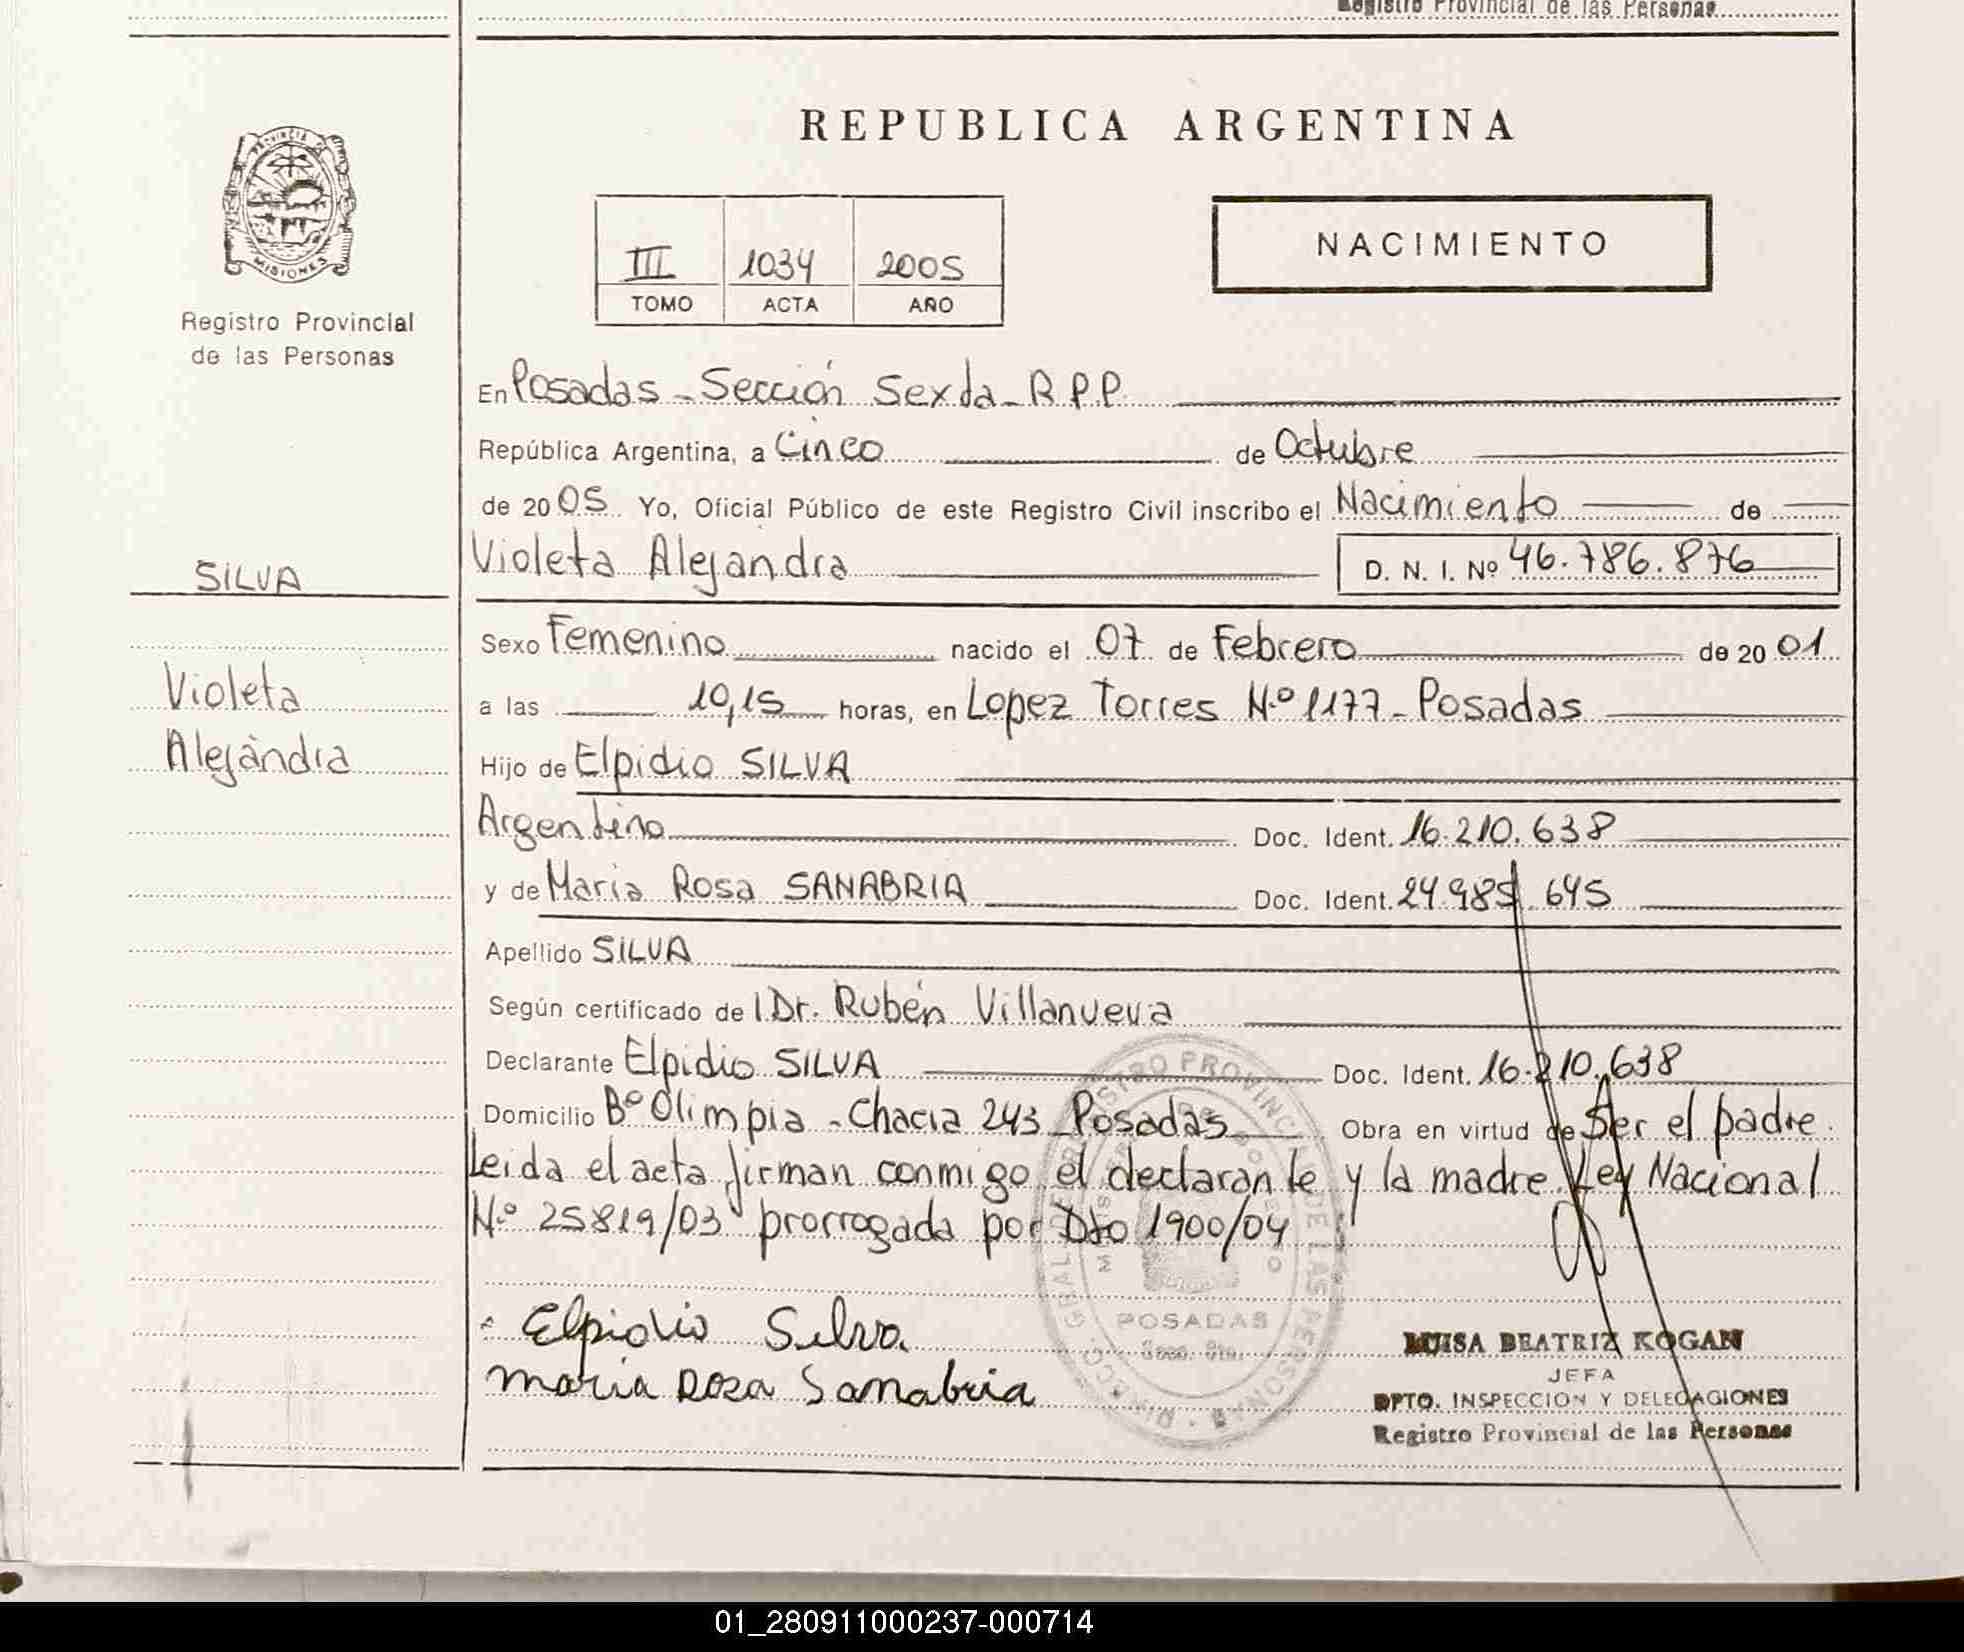 Registro Provincial de las Personas
REPUBLICA ARGENTINA
PROVINCIA DE
MISIONES
Registro Provincial
de las Personas
III 1034 2005
TOMO ACTA AÑO
NACIMIENTO
En Posadas - Sección Sexta - R.P.P.
República Argentina, a Cinco de Octubre
de 2005 Yo, Oficial Público de este Registro Civil inscribo el Nacimiento de
SILVA
Violeta Alejandra D. N. I. Nº 46.786.876
Sexo Femenino nacido el 07 de Febrero de 2001
Violeta
a las 10,15 horas, en Lopez Torres N.º 1177 - Posadas
Alejandra
Hijo de Elpidio SILVA
Argentino Doc. Ident. 16.210.638
y de Maria Rosa SANABRIA Doc. Ident. 24.985.645
Apellido SILVA
Según certificado de l Dr. Rubén Villanueva
Declarante Elpidio SILVA Doc. Ident. 16.210.638
Domicilio Bº Olimpia - Chacra 243 - Posadas Obra en virtud de Ser el padre.
Leida el acta firman conmigo el declarante y la madre. Ley Nacional
N.º 25819/03 prorrogada por Dto 1900/04
Elpidio Silva
maria Rosa Sanabria
POSADAS
LUISA BEATRIZ KOGAN
JEFA
DPTO. INSPECCION Y DELEGACIONES
Registro Provincial de las Personas
01_280911000237-000714